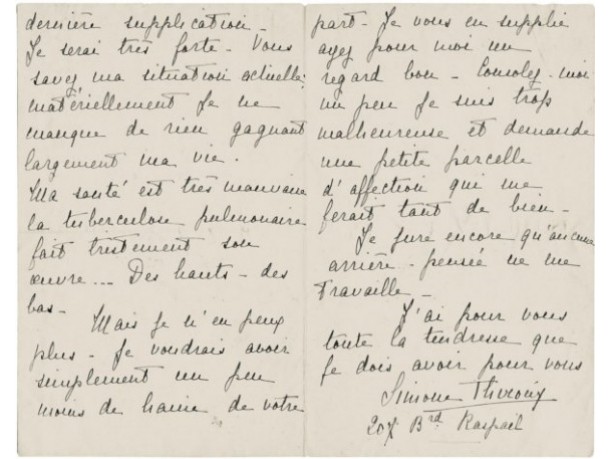 dernière supplication -
Je serai très forte - Vous
savez ma situation actuelle,
matériellement je ne
manque de rien gagnant
largement ma vie.
Ma santé est très mauvaise
la tuberculose pulmonaire
fait tristement son
œuvre... Des hauts - des
bas -
Mais je n'en peux
plus - Je voudrais avoir
simplement un peu
moins de haine de votre
part - Je vous en supplie
ayez pour moi un
regard bon - Consolez-moi
un peu je suis trop
malheureuse et demande
une petite parcelle
d'affection qui me
ferait tant de bien -
Je jure encore qu'aucune
arrière-pensée ne me
Travaille -
J'ai pour vous
toute la tendresse que
je dois avoir pour vous
Simone Thiroux
207 Brd Raspail